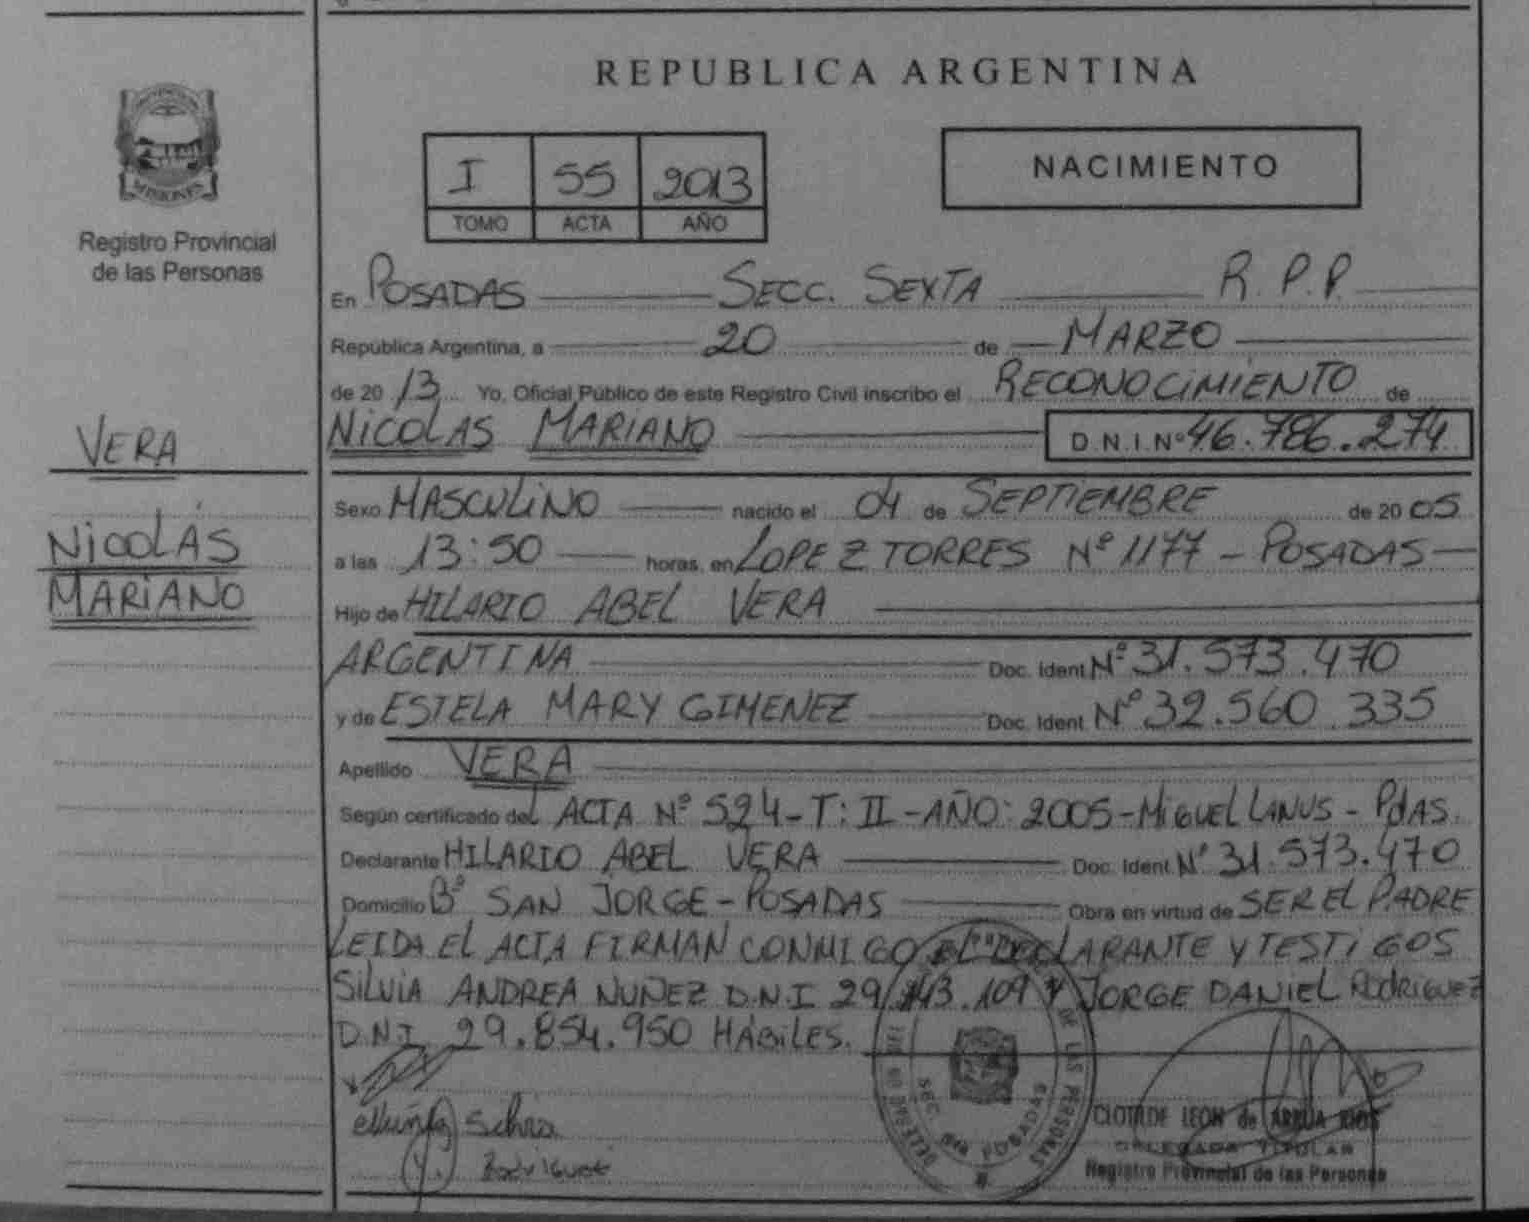 REPUBLICA ARGENTINA
MISIONES
Registro Provincial
de las Personas
I 55 2013
TOMO ACTA AÑO
NACIMIENTO
En POSADAS SECC. SEXTA R. P. P.
República Argentina, a 20 de MARZO
de 20 13 Yo, Oficial Público de este Registro Civil inscribo el RECONOCIMIENTO de
NICOLAS MARIANO D.N.I.Nº 46.786.274
VERA
NICOLÁS
MARIANO
Sexo MASCULINO nacido el 04 de SEPTIEMBRE de 20 05
a las 13:50 horas, en LOPEZ TORRES Nº 1177 - POSADAS
Hijo de HILARIO ABEL VERA
ARGENTINA Doc. Ident. Nº 31.573.470
y de ESTELA MARY GIMENEZ Doc. Ident. Nº 32.560.335
Apellido VERA
Según certificado del ACTA Nº 524 - T: II - AÑO: 2005 - MIGUEL LANUS - PDAS.
Declarante HILARIO ABEL VERA Doc. Ident. Nº 31.573.470
Domicilio Bº SAN JORGE - POSADAS Obra en virtud de SER EL PADRE
LEIDA EL ACTA FIRMAN CONMIGO EL DECLARANTE Y TESTIGOS
SILVIA ANDREA NUÑEZ D.N.I 29.143.109 Y JORGE DANIEL RODRIGUEZ
D.N.I. 29.854.950 HÁBILES.
Silvia
Rodriguez
DE LAS PERSONAS
SEC. 6ta POSADAS
CLOTILDE LEON de ARRUA RIOS
DELEGADA TITULAR
Registro Provincial de las Personas